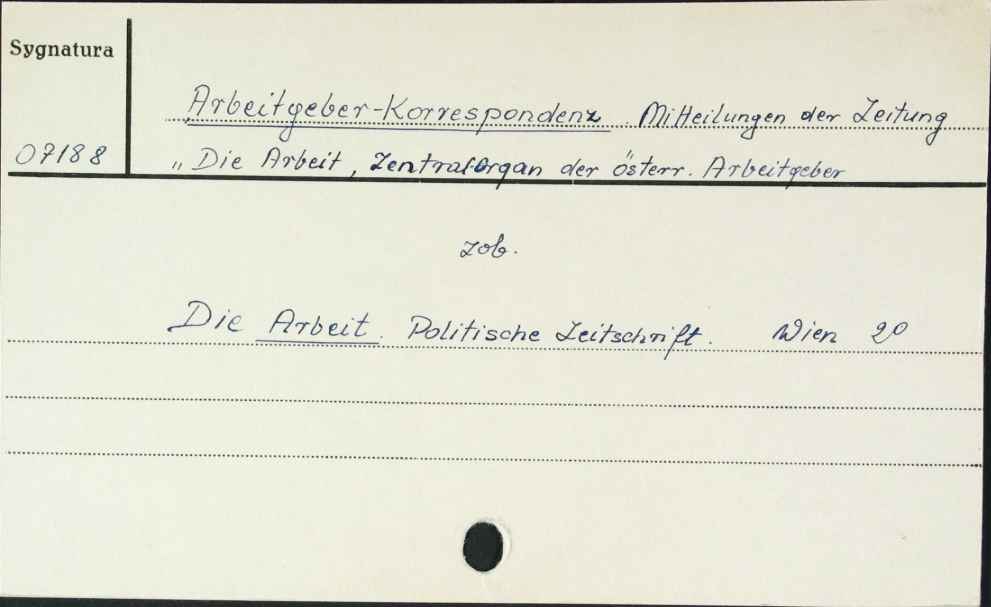 Sygnatura
Arbeitgeber-Korrespondenz. Mitteilungen der Zeitung
07188
„Die Arbeit, Zentralorgan der österr. Arbeitgeber
zob.
Die Arbeit. Politische Zeitschrift. Wien 20